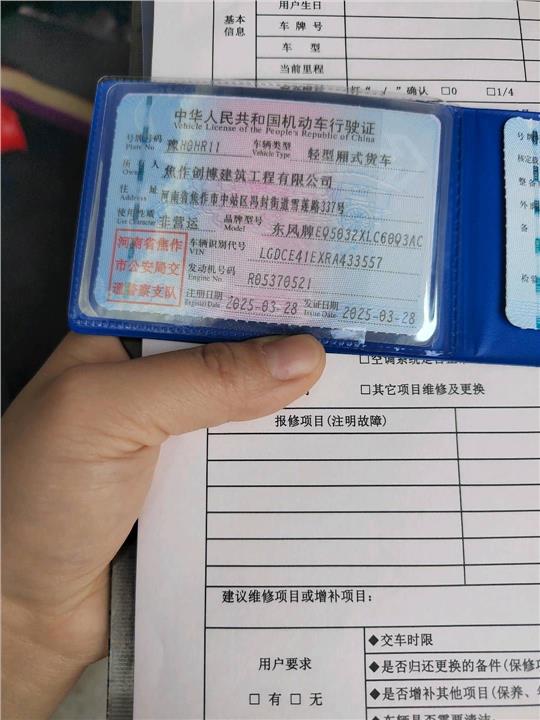 用户生日
基本
信息
车牌号
车型
当前里程
打“ / ”确认 □0 □1/4
中华人民共和国机动车行驶证
Vehicle License of the People's Republic of China
号牌号码 豫H0HR11 车辆类型 轻型厢式货车
Plate No. Vehicle Type
所有人 焦作创博建筑工程有限公司
Owner
住址 河南省焦作市中站区冯封街道雪莲路337号
Address
使用性质 非营运 品牌型号 东风牌EQ5032XLC60Q3AC
Use Character Model
河南省焦作
市公安局交
通警察支队
车辆识别代号 LGDCE41EXRA433557
VIN
发动机号码 R05370521
Engine No.
注册日期 2025-03-28 发证日期 2025-03-28
Register Date Issue Date
核定载
整备
外
备
检验
□空调系统是否
□其它项目维修及更换
报修项目(注明故障)
建议维修项目或增补项目:
用户要求
□ 有 □ 无
◆交车时限
◆是否归还更换的备件(保修项
◆是否增补其他项目(保养、
车辆是否需要清洁